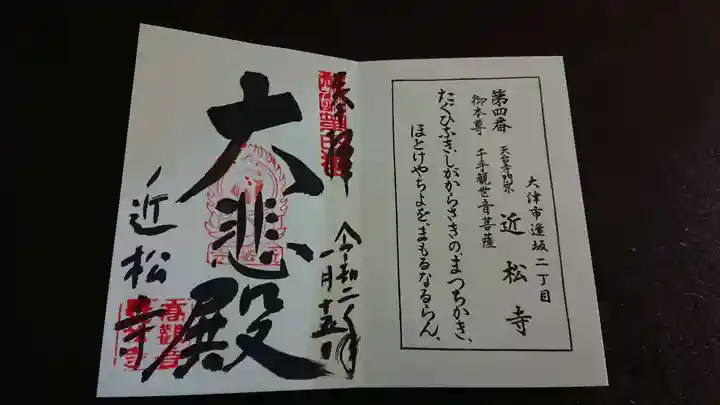 大津市逢坂二丁目
第四番 天台寺門宗 近松寺
御本尊 千手観世音菩薩
たぐひなきしがからさきのまつちかき、
ほとけやちよをまもるなるらん、
奉拝
令和二年
一月十五日
大悲殿
近松寺
高觀音